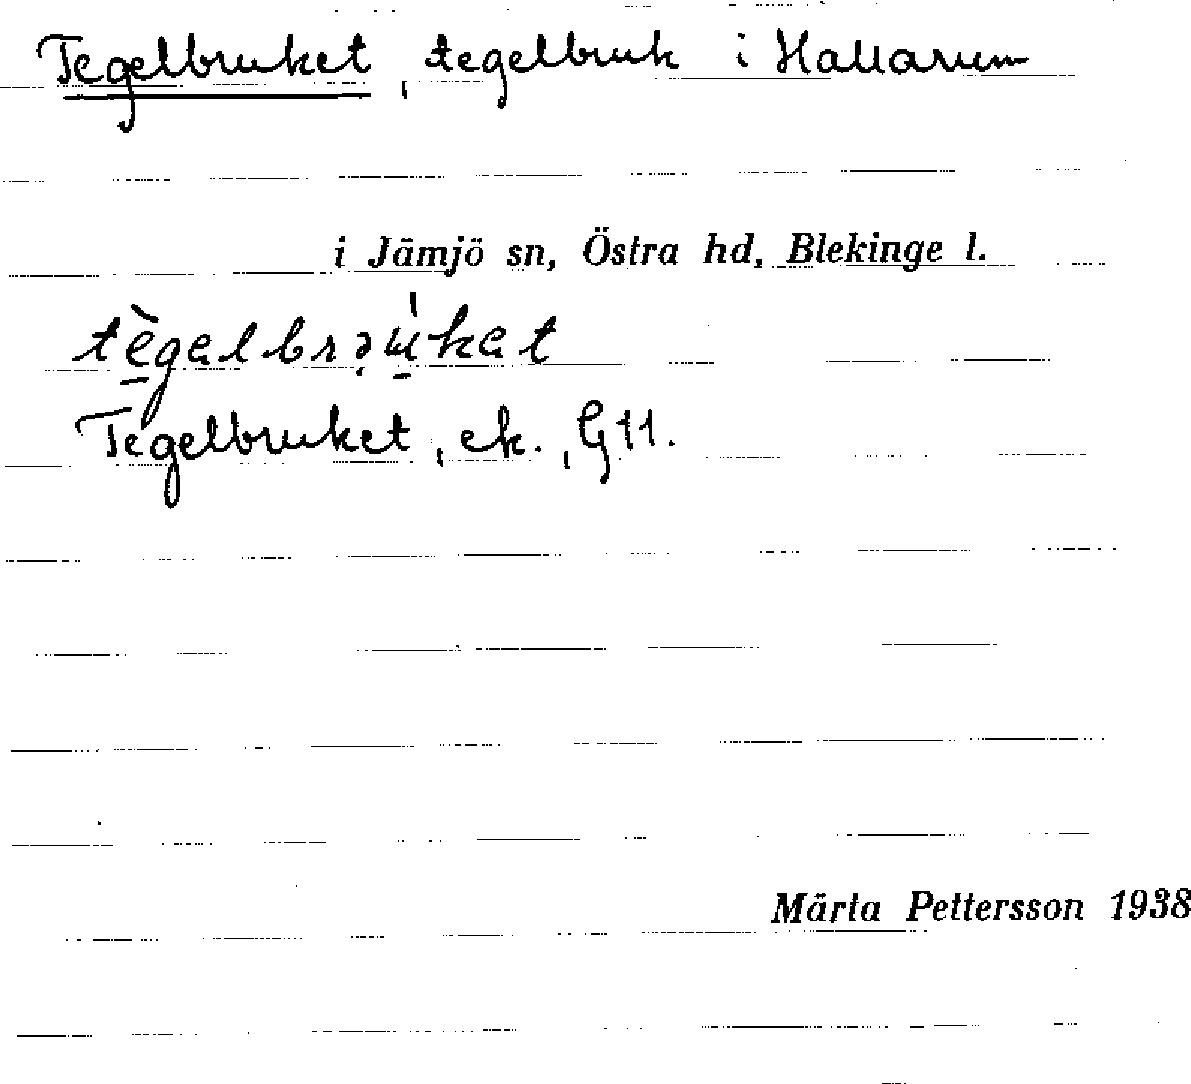 Tegelbruket, tegelbruk i Hallarum
i Jämjö sn, Östra hd, Blekinge l.
Tegelbruket, ek., G11.
Märta Pettersson 1938